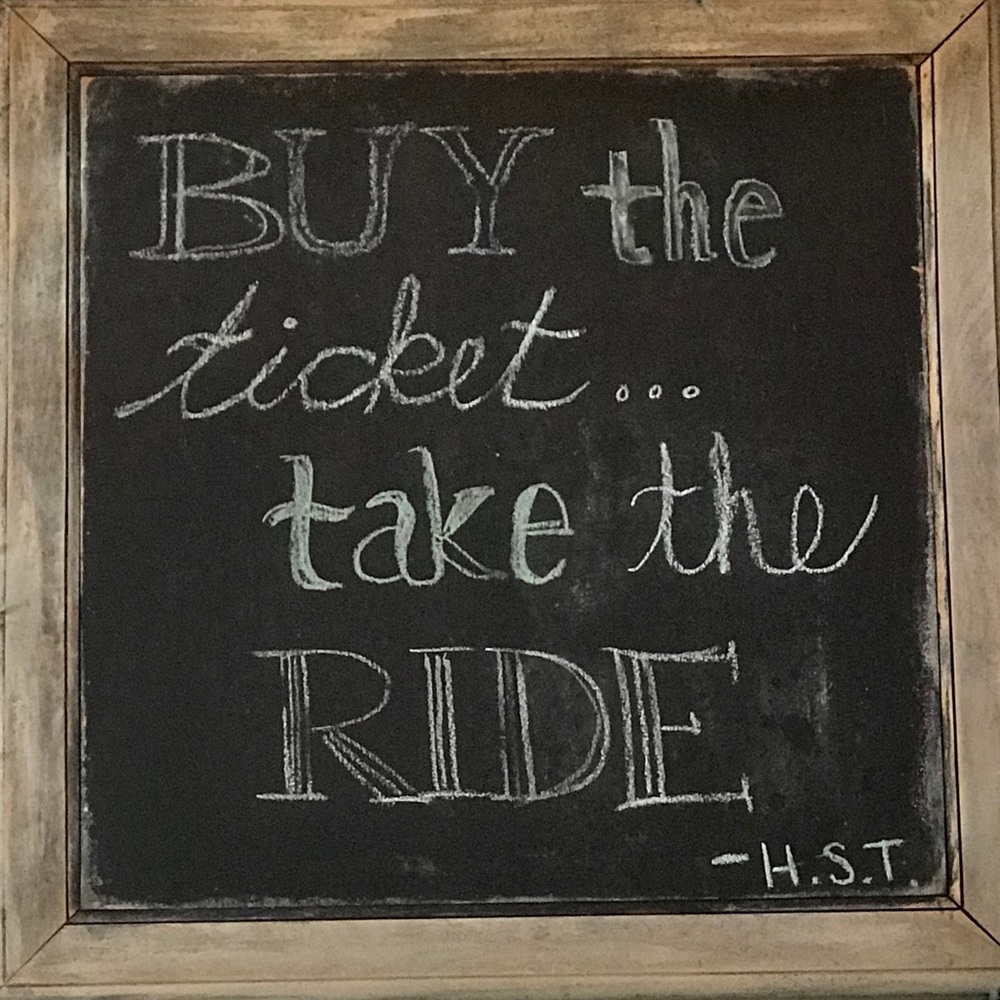 BUY the
ticket...
take the
RIDE
-H.S.T.